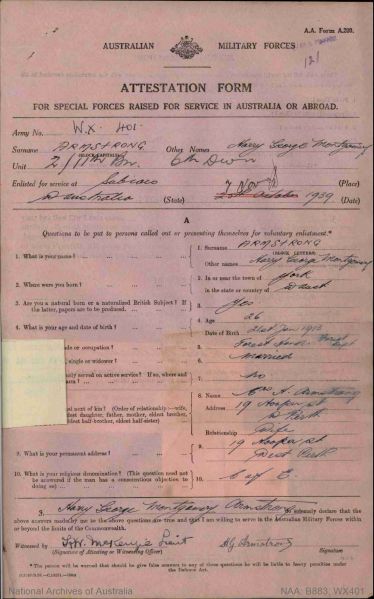 A.A. Form A.200.
AUSTRALIAN MILITARY FORCES
121
ATTESTATION FORM
FOR SPECIAL FORCES RAISED FOR SERVICE IN AUSTRALIA OR ABROAD.
Army No. W.X. 401.
Surname ARMSTRONG Other Names Harry George Montgomery
(BLOCK LETTERS)
Unit 2/11th Bn. 6th Divn
Enlisted for service at Subiaco (Place)
W Australia (State) October 1939 (Date)
A
Questions to be put to persons called out or presenting themselves for voluntary enlistment.*
1. What is your name?
1. Surname ARMSTRONG
(BLOCK LETTERS)
Other names Harry George Montgomery
2. Where were you born?
2. In or near the town of York
in the state or country of W Aust
3. Are you a natural born or a naturalized British Subject? If the latter, papers are to be produced.
3. Yes
4. What is your age and date of birth?
4. Age 26
Date of Birth 21st Jan 1913
trade or occupation?
5. Forest Forest Dept
single or widower?
6. Married
previously served on active service? If so, where and
7. No
next of kin? (Order of relationship—wife, eldest daughter, father, mother, eldest brother, eldest half-brother, eldest half-sister)
8. Name Mrs A. Armstrong
Address 19 Hooper St
W Perth
Relationship Wife
9. What is your permanent address?
9. 19 Hooper St
West Perth
10. What is your religious denomination? (This question need not be answered if the man has a conscientious objection to doing so)
10. C of E
I, Harry George Montgomery Armstrong do solemnly declare that the
above answers made by me to the above questions are true and that I am willing to serve in the Australian Military Forces within
or beyond the limits of the Commonwealth.
Witnessed by McKenzie Lieut HG Armstrong
(Signature of Attesting or Witnessing Officer) Signature
* The person will be warned that should he give false answers to any of these questions he will be liable to heavy penalties under
the Defence Act.
National Archives of Australia
NAA: B883, WX401